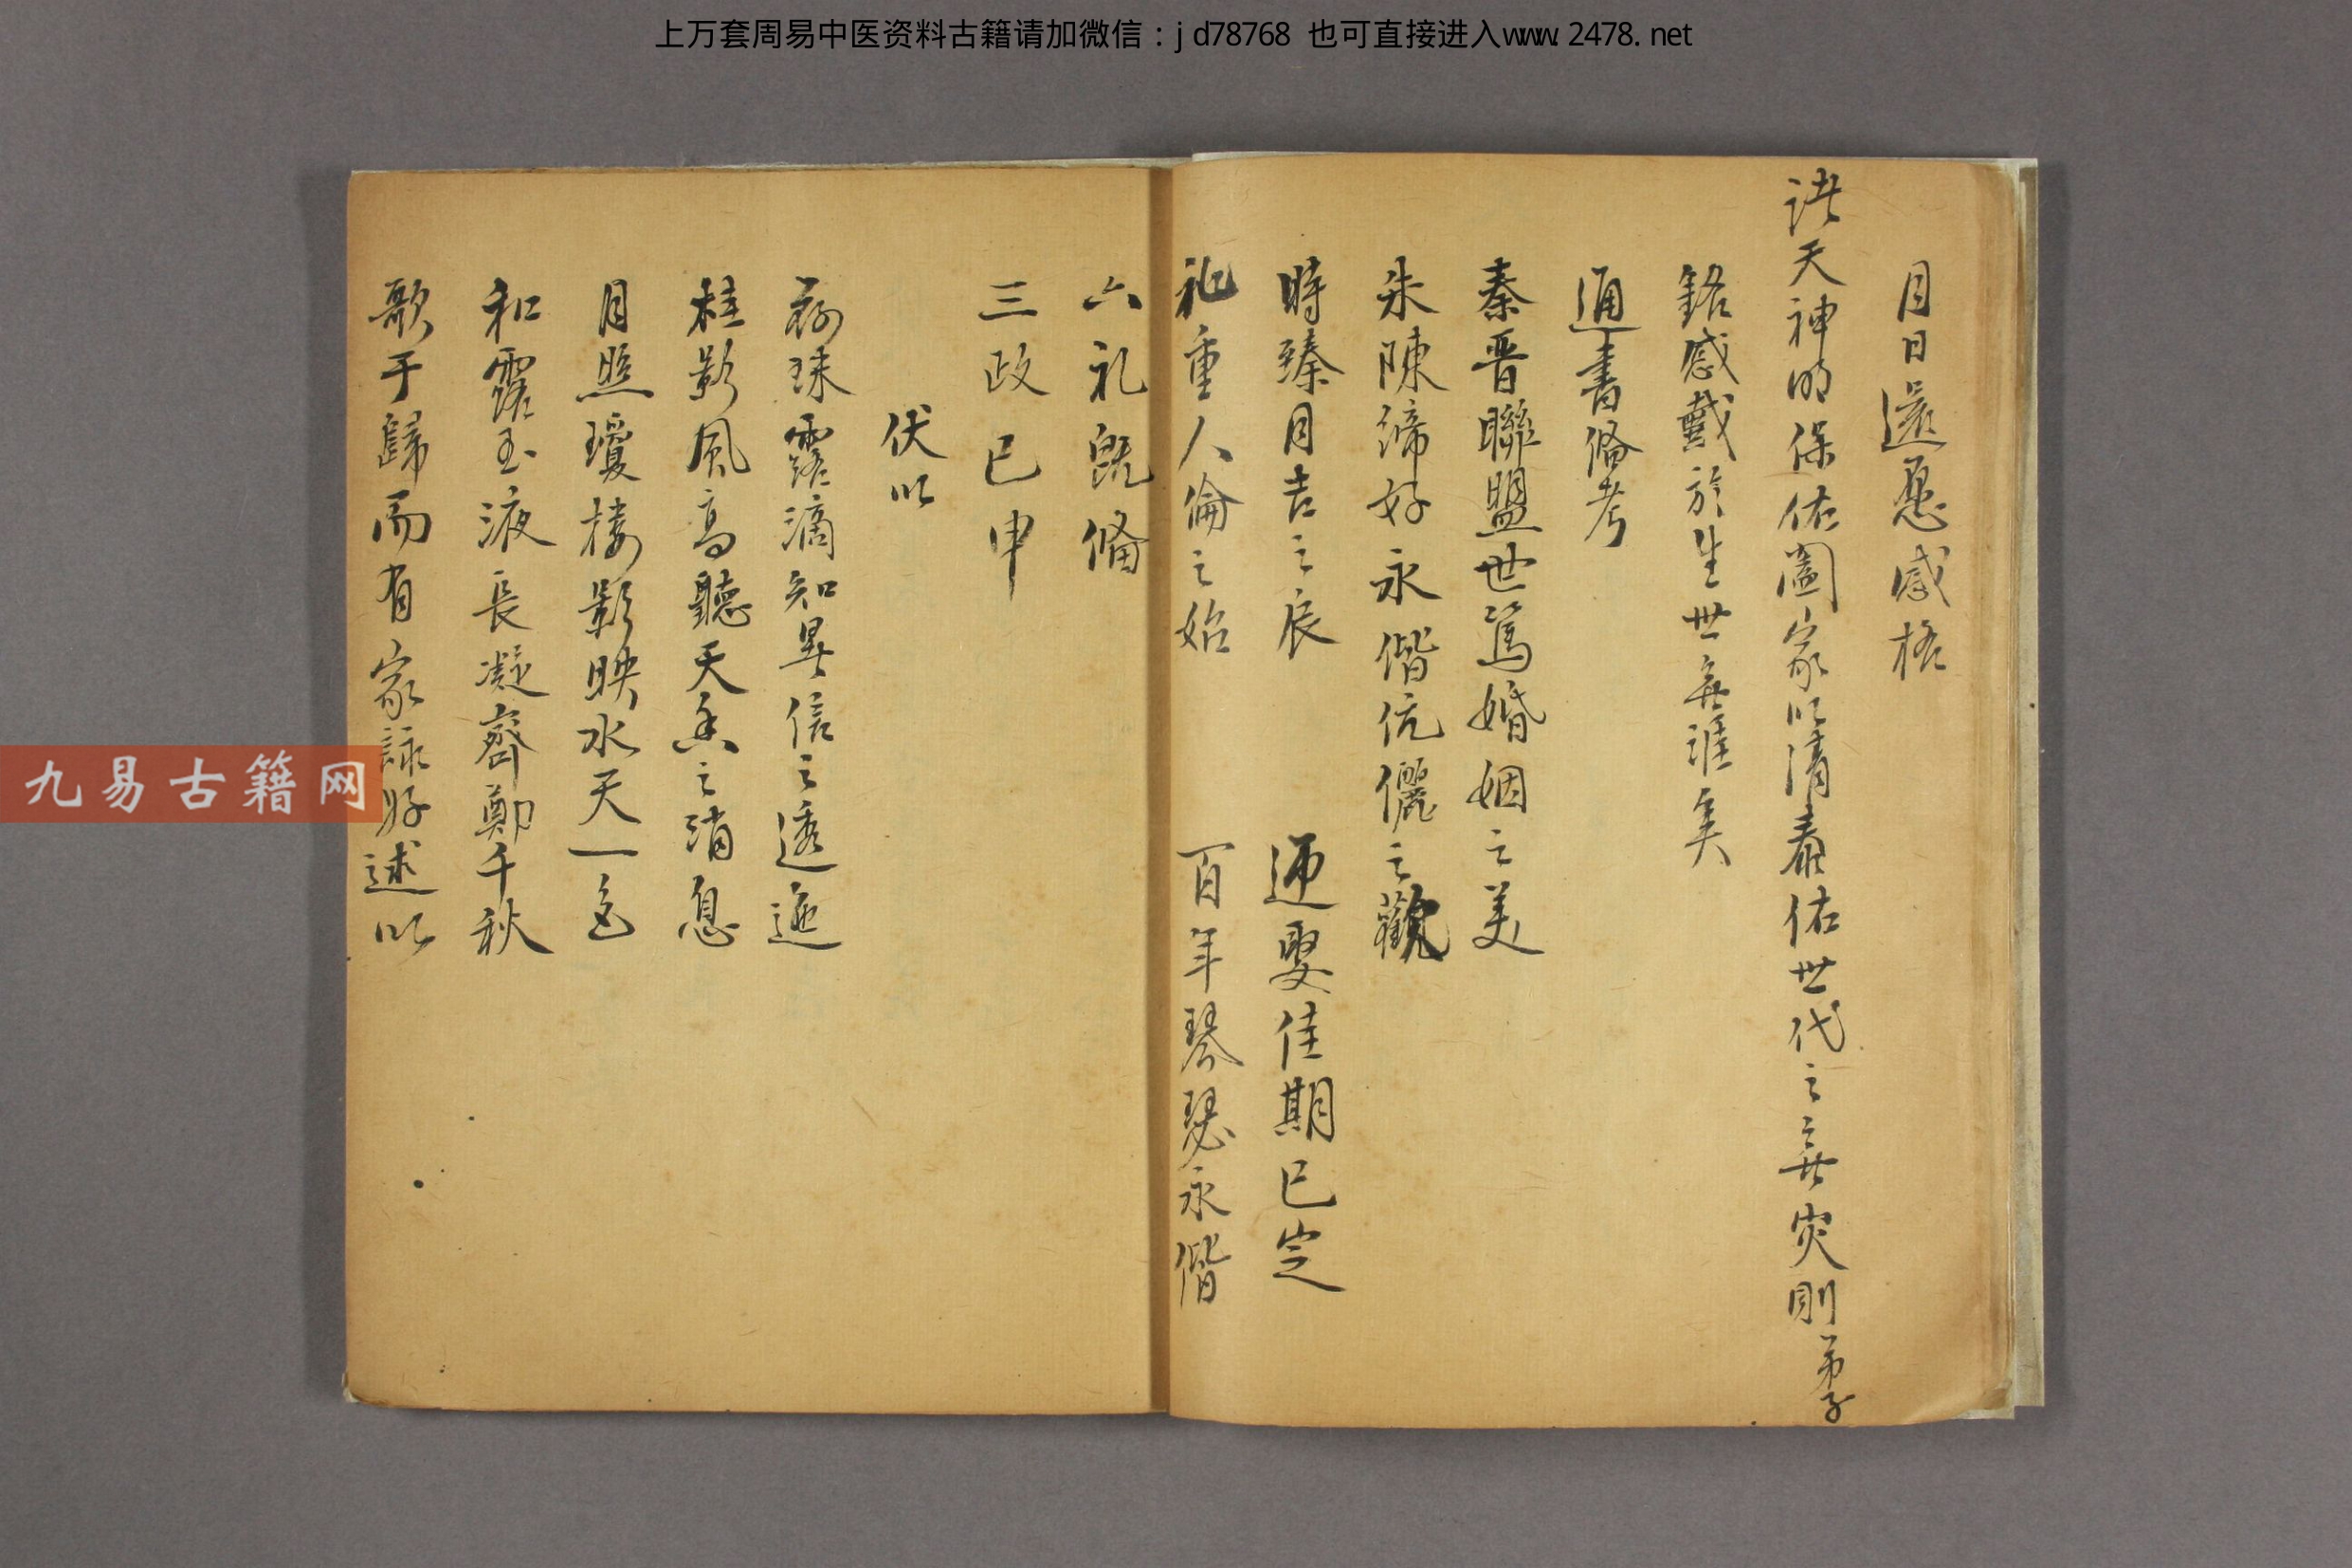 上万套周易中医资料古籍请加微信：jd78768 也可直接进入www.2478.net
月日還愿感格
諸天神明保佑闔家以清泰佑世代之無災則弟子
銘感戴於生世無涯矣
通書俻考
秦晋聯盟世篤婚姻之美
朱陳締好永偕伉儷之觀
時臻月吉之辰 迊娶佳期已定
礼重人倫之始 百年琴瑟永偕
六礼既俻
三政已申
伏以
珠露滴知畢信之透迤
桂影風高聽天香之消息
月照瓊楼影映水天一色
和露玉液長凝齊鄭千秋
歌于歸而有家詠好述以
九易古籍网